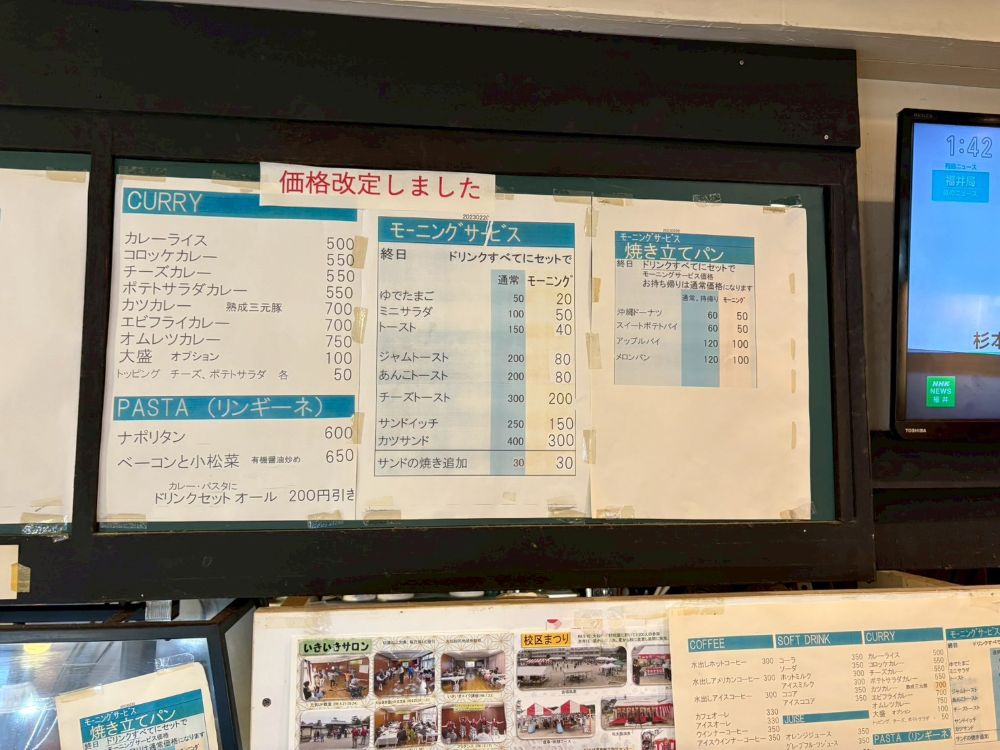 価格改定しました
CURRY
カレーライス 500
コロッケカレー 550
チーズカレー 550
ポテトサラダカレー 550
カツカレー 熟成三元豚 700
エビフライカレー 700
オムレツカレー 750
大盛 オプション 100
トッピング チーズ、ポテトサラダ 各 50
PASTA (リンギーネ)
ナポリタン 600
ベーコンと小松菜 有機醤油炒め 650
カレー・パスタに
ドリンクセット オール 200円引き
モーニングサービス
終日 ドリンクすべてにセットで
通常 モーニング
ゆでたまご 50 20
ミニサラダ 100 50
トースト 150 40
ジャムトースト 200 80
あんこトースト 200 80
チーズトースト 300 200
サンドイッチ 250 150
カツサンド 400 300
サンドの焼き追加 30 30
モーニングサービス
焼き立てパン
終日 ドリンクすべてにセットで
モーニングサービス価格
お持ち帰りは通常価格になります
通常、持帰り モーニング
沖縄ドーナツ 60 50
スイートポテトパイ 60 50
アップルパイ 120 100
メロンパン 120 100
1:42
福井局
杉本
NHK
NEWS
福井
TOSHIBA
モーニングサービス
焼き立てパン
終日 ドリンクすべてにセットで
いきいきサロン
校区まつり
COFFEE
水出しホットコーヒー 300
水出しアメリカンコーヒー 300
水出しアイスコーヒー 300
カフェオーレ 330
アイスオーレ 350
ウインナーコーヒー 350
アイスウインナーコーヒー 350
SOFT DRINK
コーラ 350
ソーダ 350
ホットミルク 350
アイスミルク 350
ココア 350
アイスココア 350
JUISE
オレンジジュース 350
グレープフルーツジュース 350
CURRY
カレーライス 500
コロッケカレー 550
チーズカレー 550
ポテトサラダカレー 550
カツカレー 熟成三元豚 700
エビフライカレー 700
オムレツカレー 750
大盛 オプション 100
トッピング チーズ、ポテトサラダ 各 50
PASTA (リンギーネ)
モーニングサービス
ゆでたまご
ミニサラダ
トースト
ジャムトースト
あんこトースト
チーズトースト
サンドイッチ
カツサンド
サンドの焼き追加